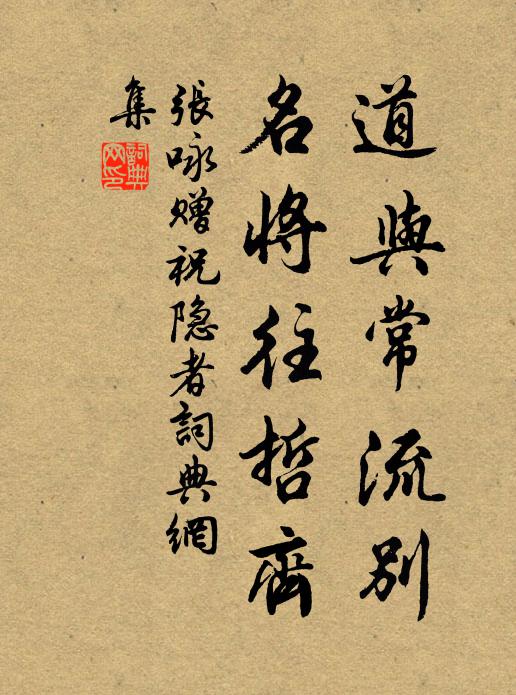 道與常流別
名將往哲齊
張咏贈祝隐者詞典網
集
詞典網印